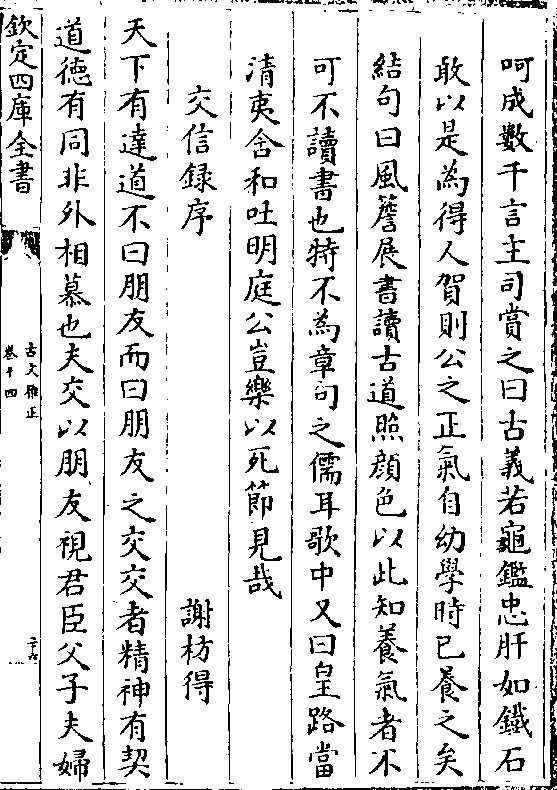 呵成數千言主司賞之曰古義若龜鑑忠肝如鐵石
敢以是為得人賀則公之正氣自幼學時已養之矣
結句曰風簷展書讀古道照顔色以此知養氣者不
可不讀書也特不為章句之儒耳歌中又曰皇路當
清夷含和吐明庭公豈樂以死節見哉
交信録序
謝枋得
天下有達道不曰朋友而曰朋友之交交者精神有契
道徳有同非外相慕也夫交以朋友視君臣父子夫婦
欽定四庫全書
古文雅正
卷十四
二十六